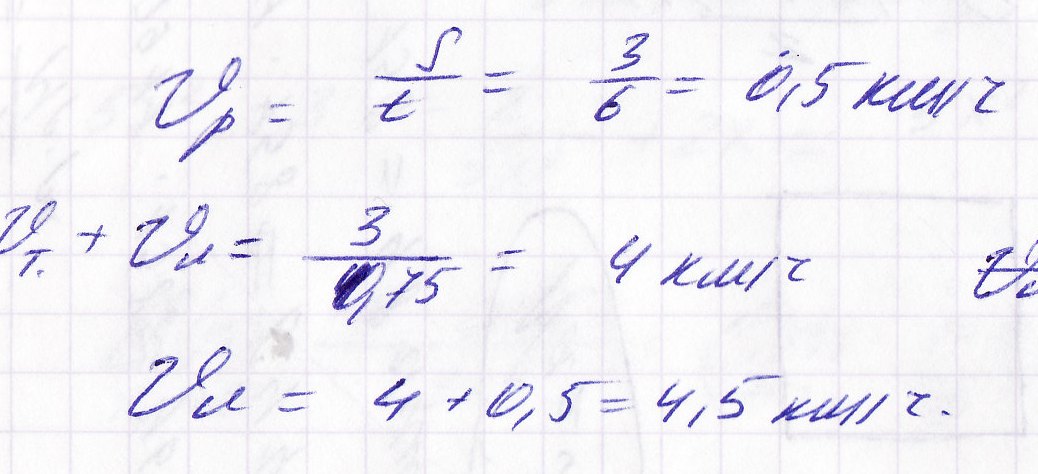 Vр = S/t = 3/6 = 0,5 км/ч
Vт. + Vл = 3/0,75 = 4 км/ч
Vл = 4 + 0,5 = 4,5 км/ч.